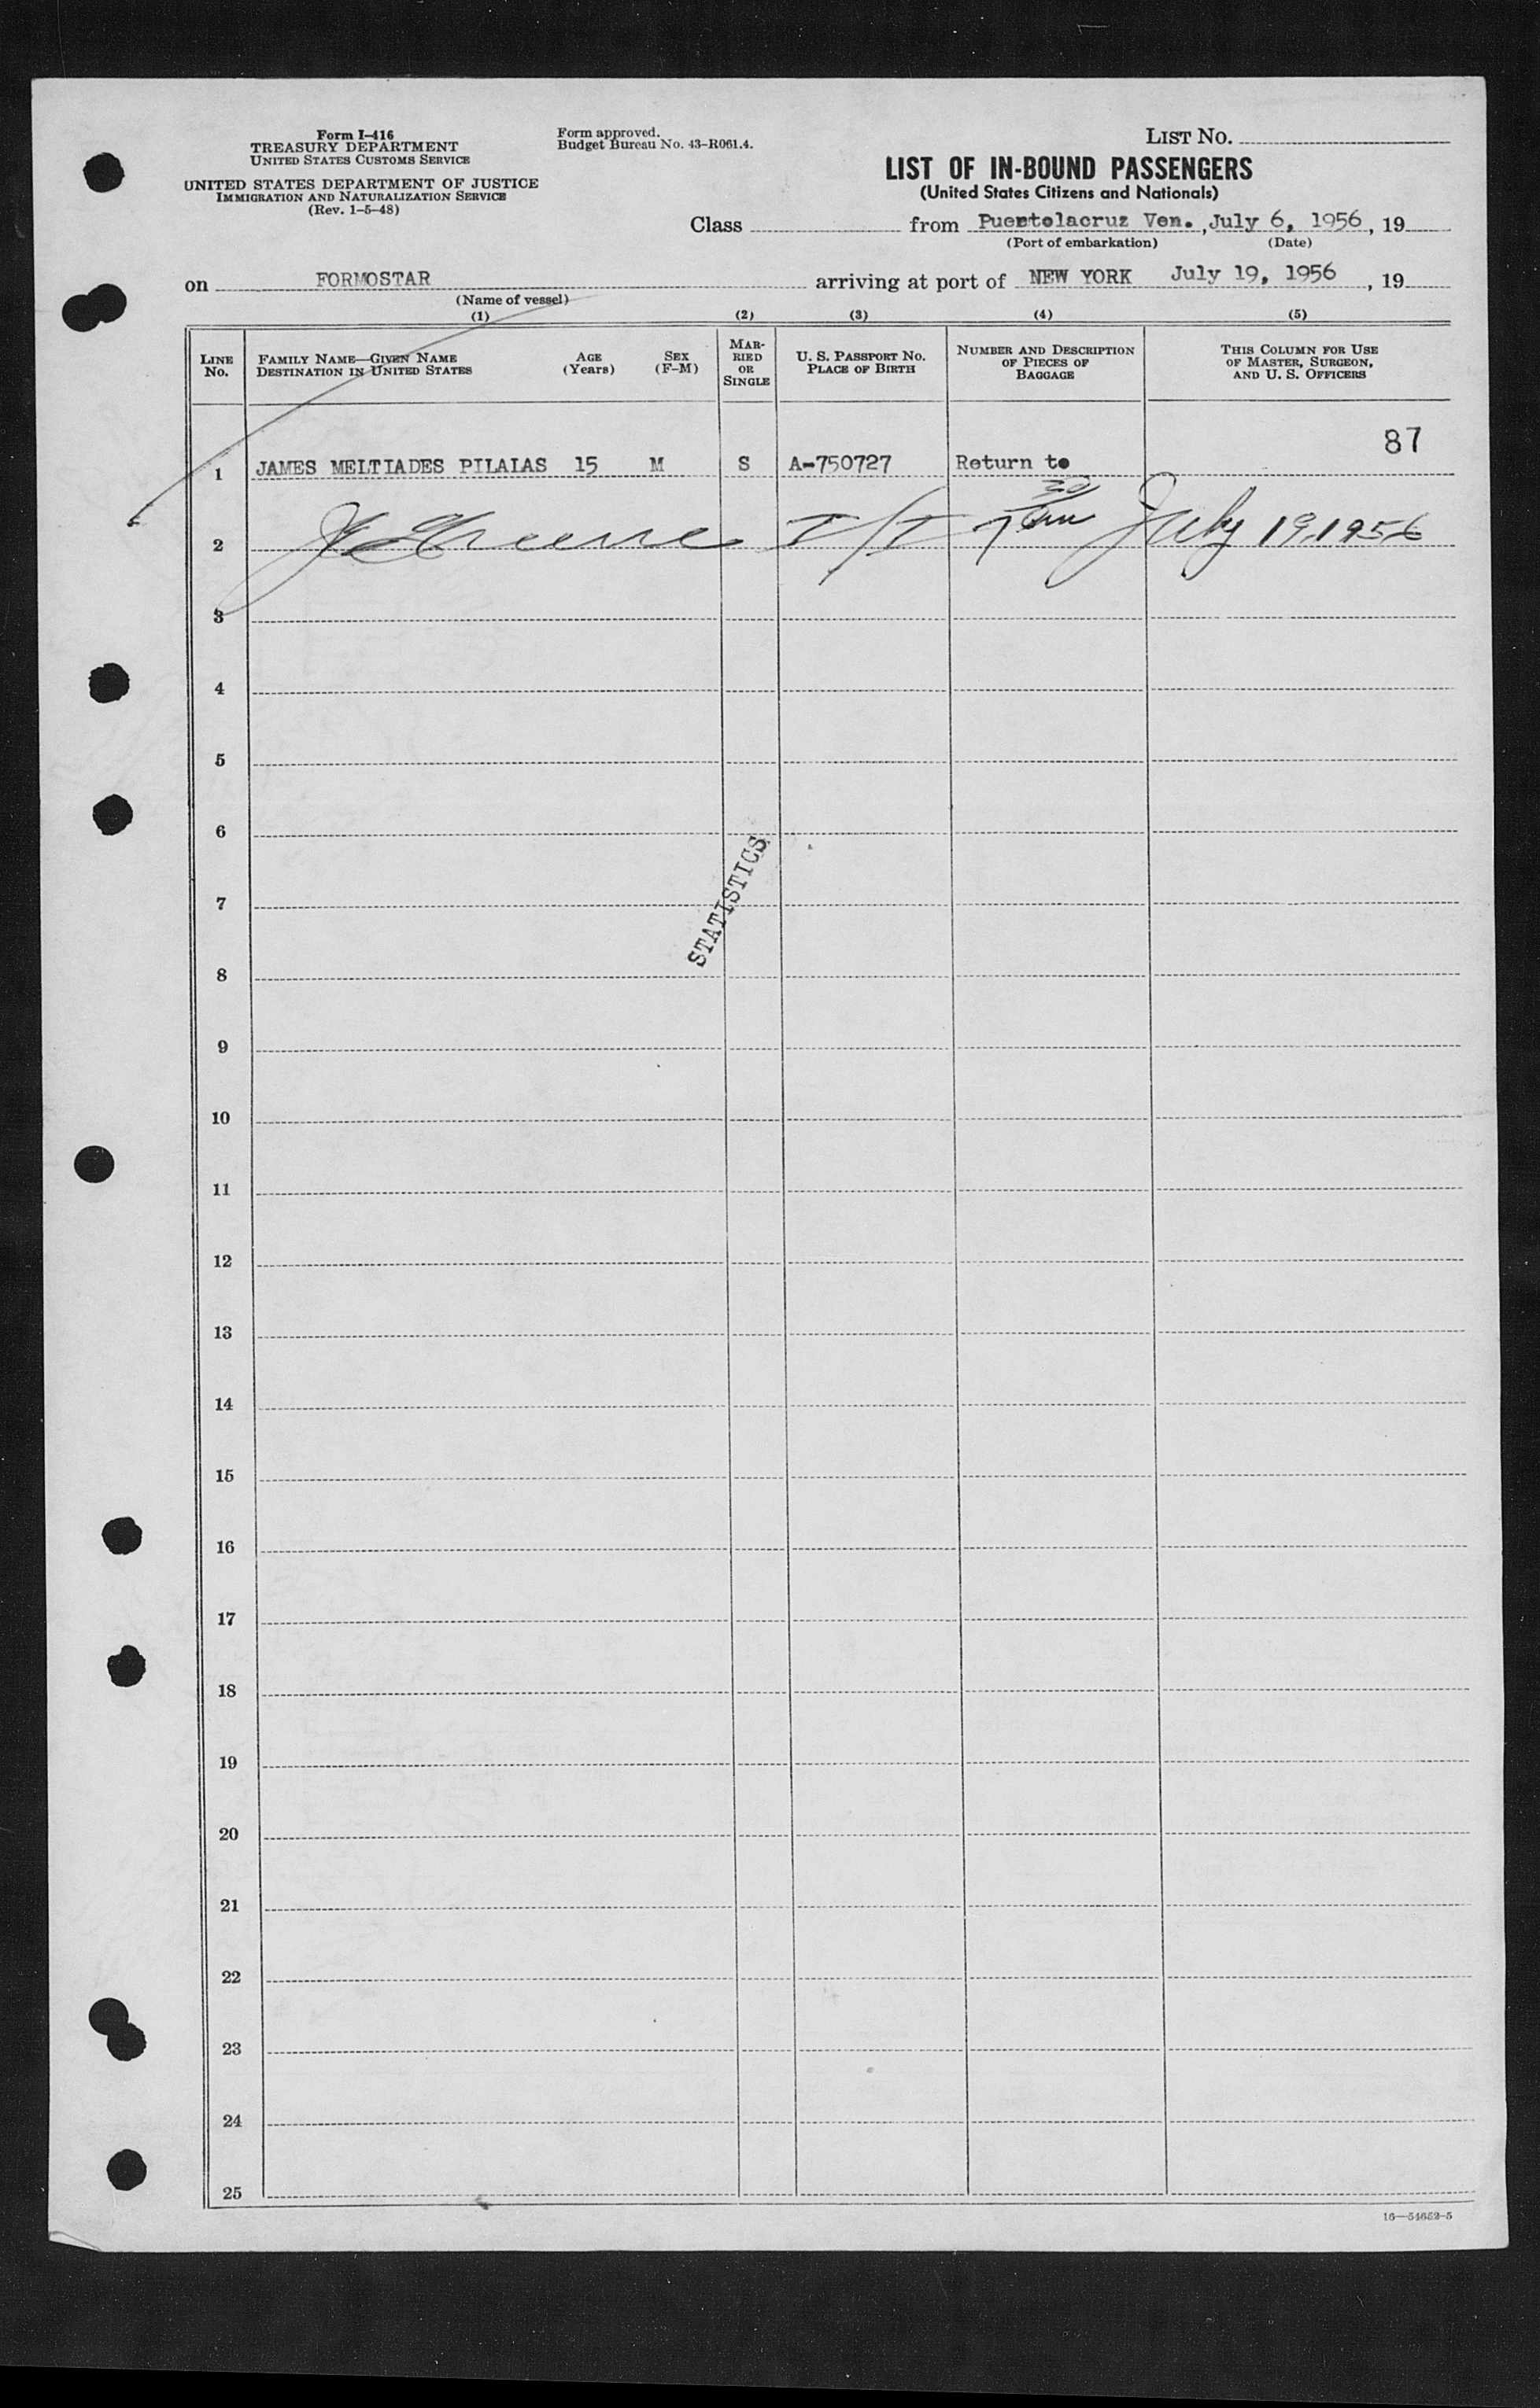 Form I-416
TREASURY DEPARTMENT
UNITED STATES CUSTOMS SERVICE
UNITED STATES DEPARTMENT OF JUSTICE
IMMIGRATION AND NATURALIZATION SERVICE
(Rev. 1-5-48)
Form approved.
Budget Bureau No. 43-R061.4.
LIST NO.
LIST OF IN-BOUND PASSENGERS
(United States Citizens and Nationals)
Class from Puertolacruz Ven., July 6, 1956, 19
(Port of embarkation) (Date)
on FORMOSTAR arriving at port of NEW YORK July 19, 1956, 19
(Name of vessel)
(1) (2) (3) (4) (5)
LINE No.
FAMILY NAME—GIVEN NAME
DESTINATION IN UNITED STATES
AGE (Years)
SEX (F-M)
MARRIED OR SINGLE
U. S. PASSPORT NO.
PLACE OF BIRTH
NUMBER AND DESCRIPTION OF PIECES OF BAGGAGE
THIS COLUMN FOR USE OF MASTER, SURGEON, AND U. S. OFFICERS
87
1 JAMES MELTIADES PILAIAS 15 M S A-750727 Return to
2 Greene I/I July 19, 1956
3
4
5
6
STATISTICS
7
8
9
10
11
12
13
14
15
16
17
18
19
20
21
22
23
24
25
16—54652-5